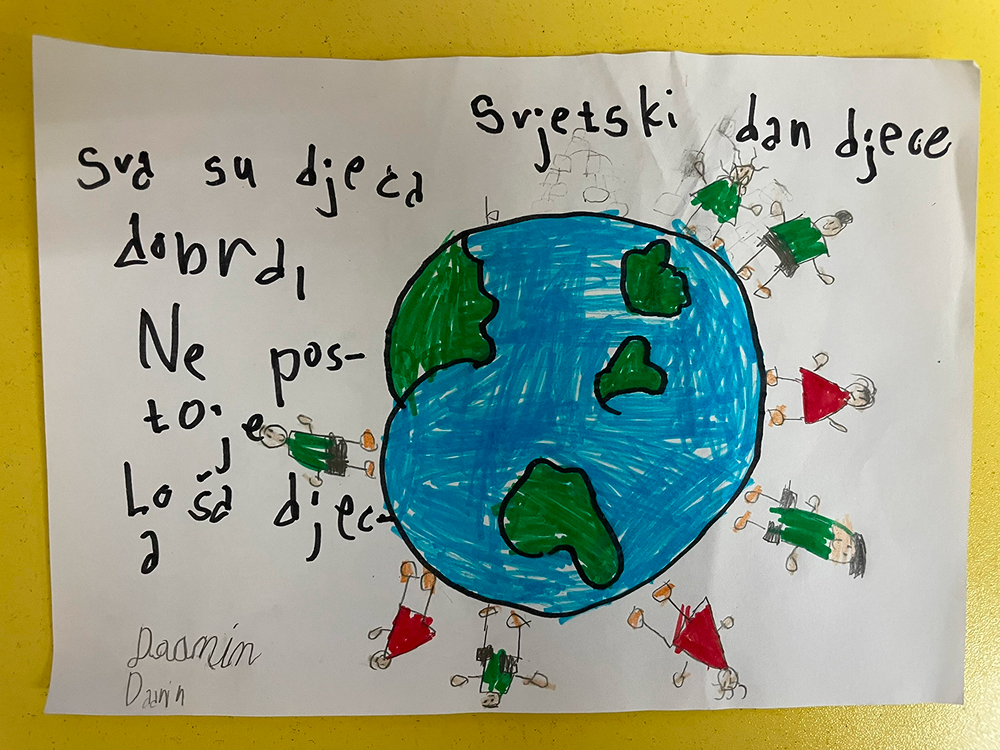 Svjetski dan djece
Sva su djeca
dobra,
Ne pos-
toje
Loša djec-
a
Daamin
Daanin